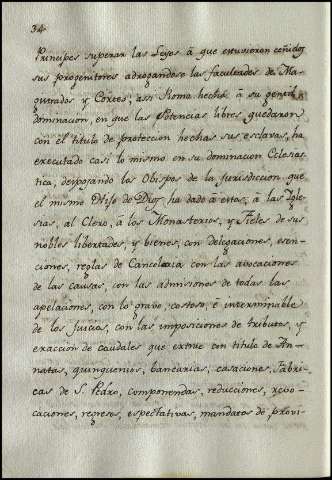 34
Principes superar las Leyes á que estuvieron ceñidos
sus progenitores adrogandose las facultades de Ma-
gistrados y Cortes; assi Roma hecha á su genial
dominacion, en que las Potencias libres quedaron
con el titulo de proteccion hechas sus esclavas, ha
executado casi lo mismo en su dominacion Eclesias-
tica, despojando los Obispos de la Jurisdiccion que
el mismo Hijo de Dios ha dado á estos, á las Igle-
sias, al Clero, á los Monasterios, y Fieles de sus
nobles libertades, y bienes, con delegaciones, esen-
ciones, reglas de Cancelaria con las avocaciones
de las causas, con las admisiones de todas las
apelaciones, con lo grave, costoso, é interminable
de los Juicios, con las imposiciones de tributos, y
exaccion de caudales que extrae con titulo de An-
natas, quinquenios, bancarias, casaciones, Fabri-
cas de S. Pedro, componendas, reducciones, revo-
caciones, regresos, espectativas, mandatos de provi-